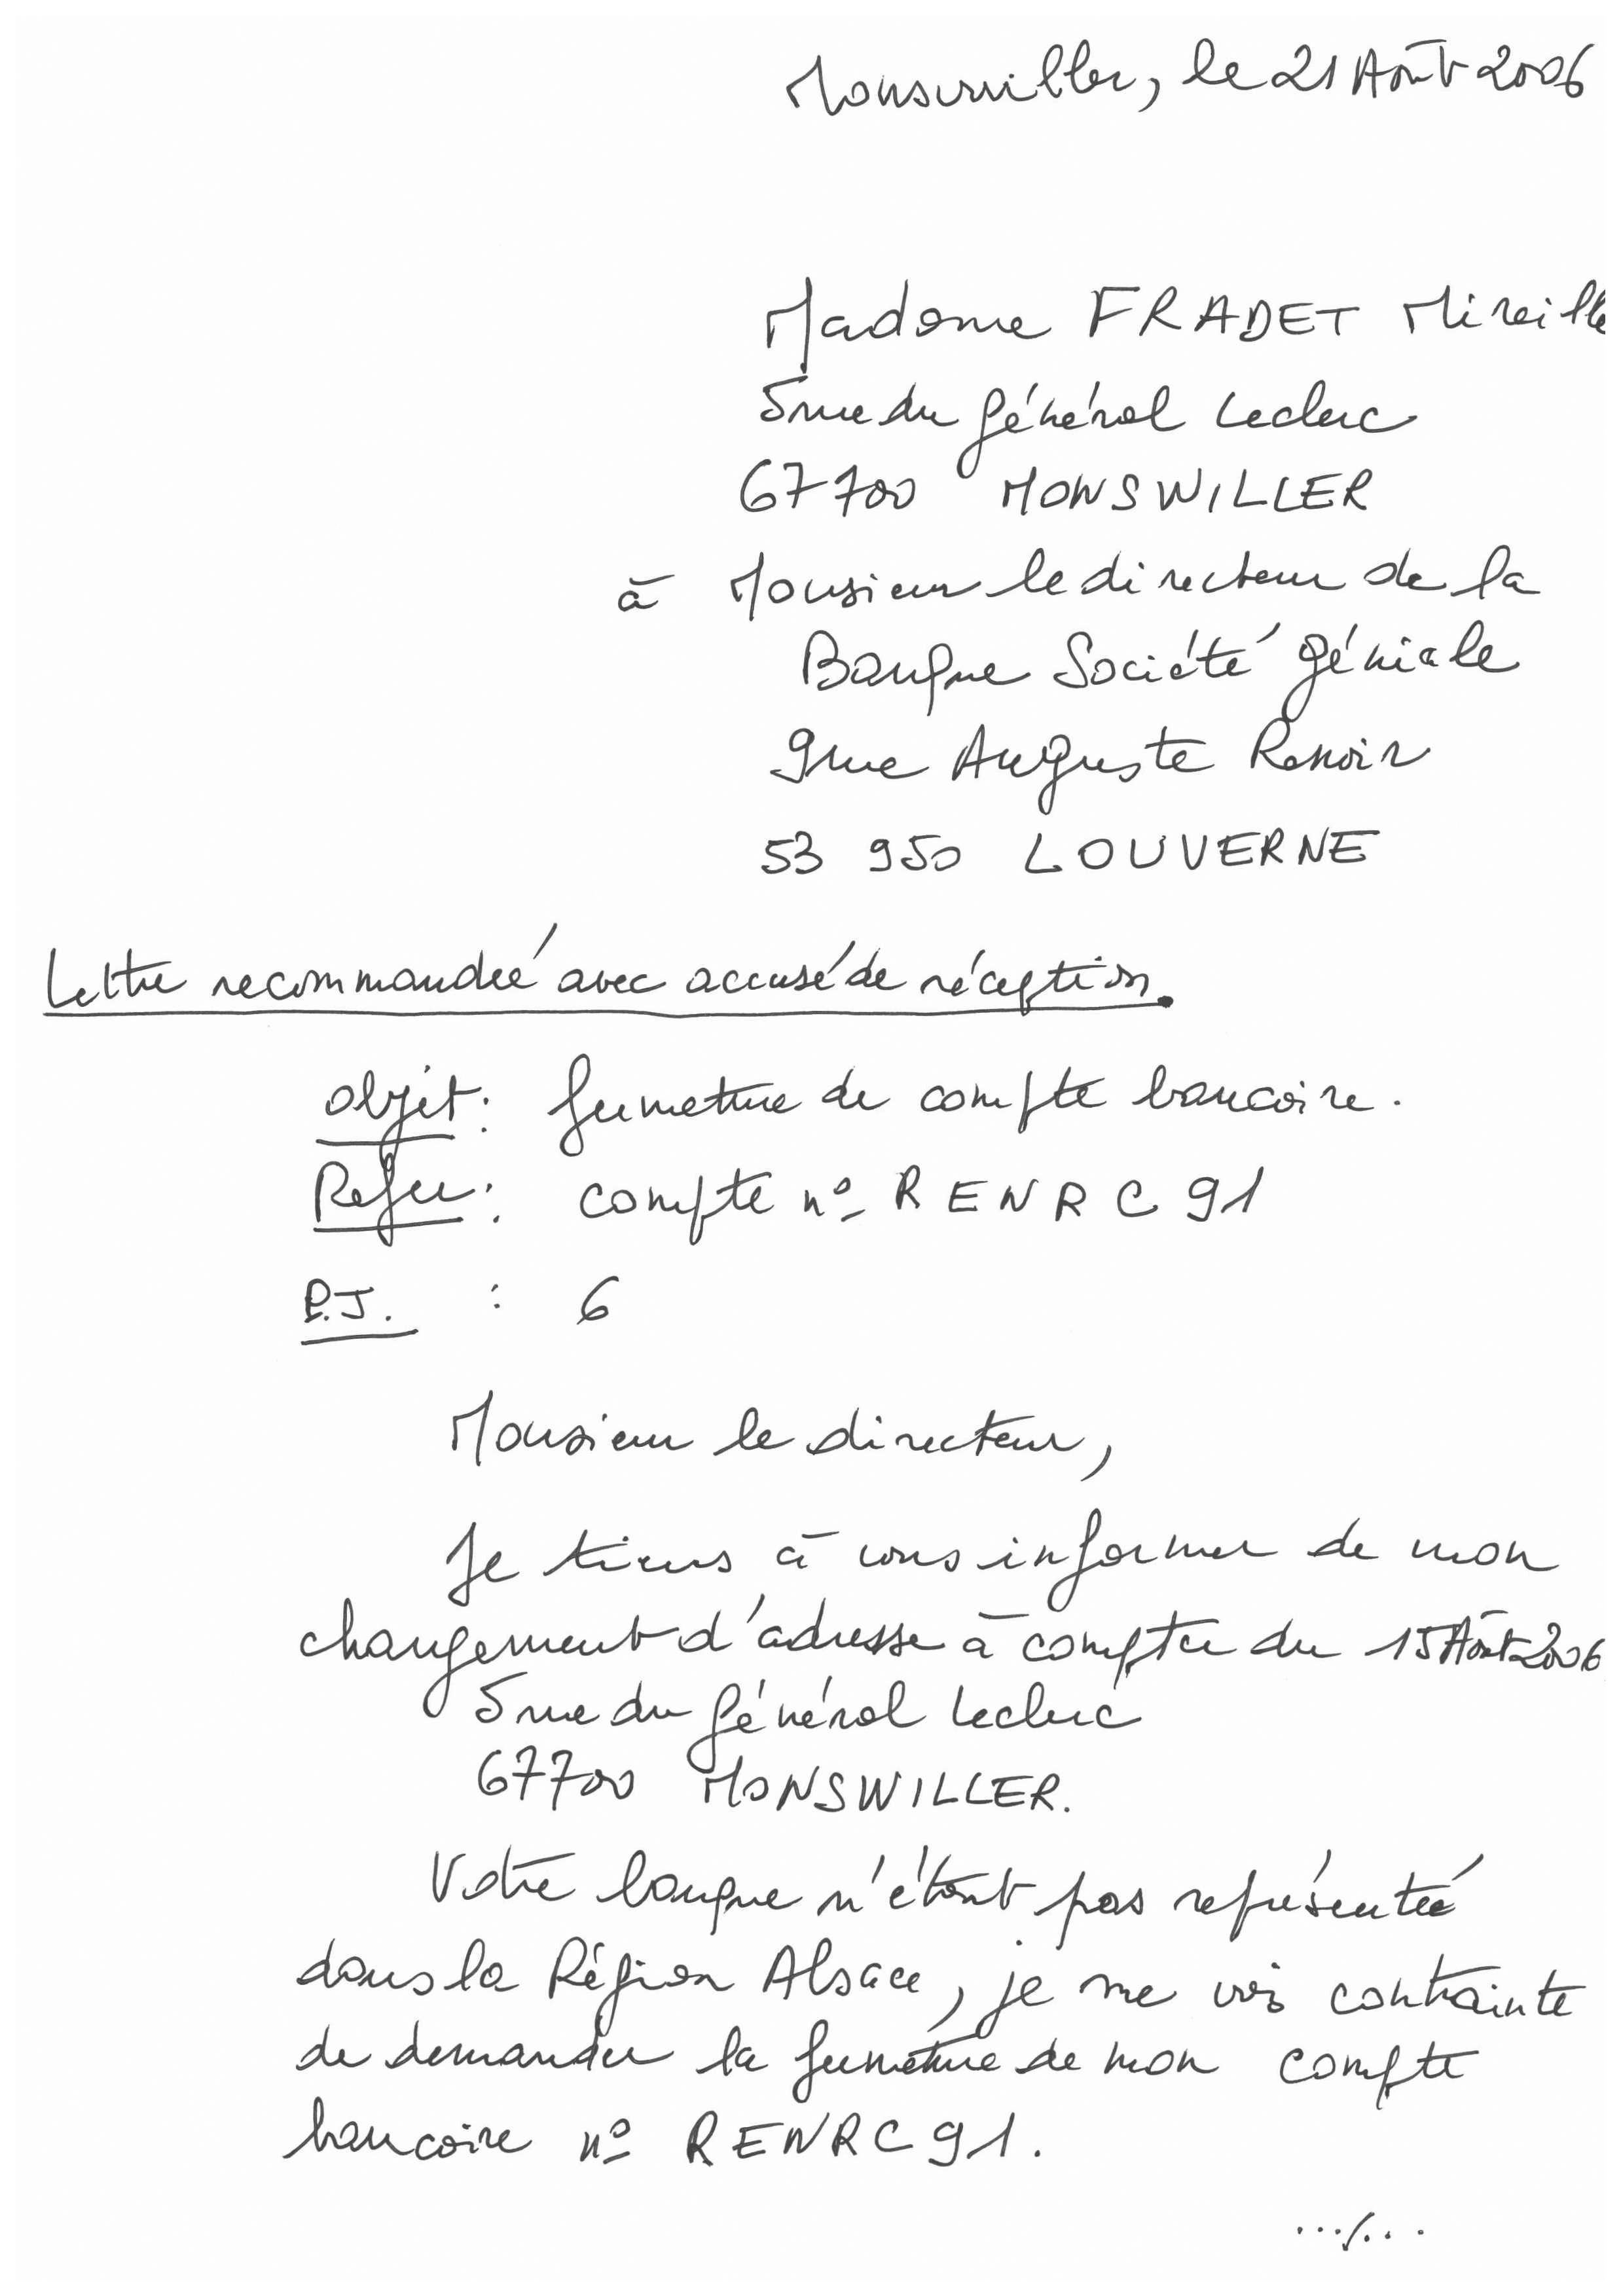 Monswiller, le 21 Août 2006
Madame FRADET Mireille
5 rue du général Leclerc
67700 MONSWILLER
à Monsieur le directeur de la
Banque Société géniale
9 rue Auguste Renoir
53 950 LOUVERNE
Lettre recommandée avec accusé de réception.
objet : fermeture de compte bancaire.
Refer : compte n° RENRC 91
P.J. : 6
Monsieur le directeur,
Je tiens à vous informer de mon
changement d'adresse à compter du 15 Août 2006
5 rue du général Leclerc
67700 MONSWILLER.
Votre banque n'étant pas représentée
dans la Région Alsace, je me vois contrainte
de demander la fermeture de mon compte
bancaire n° RENRC 91.
.../...